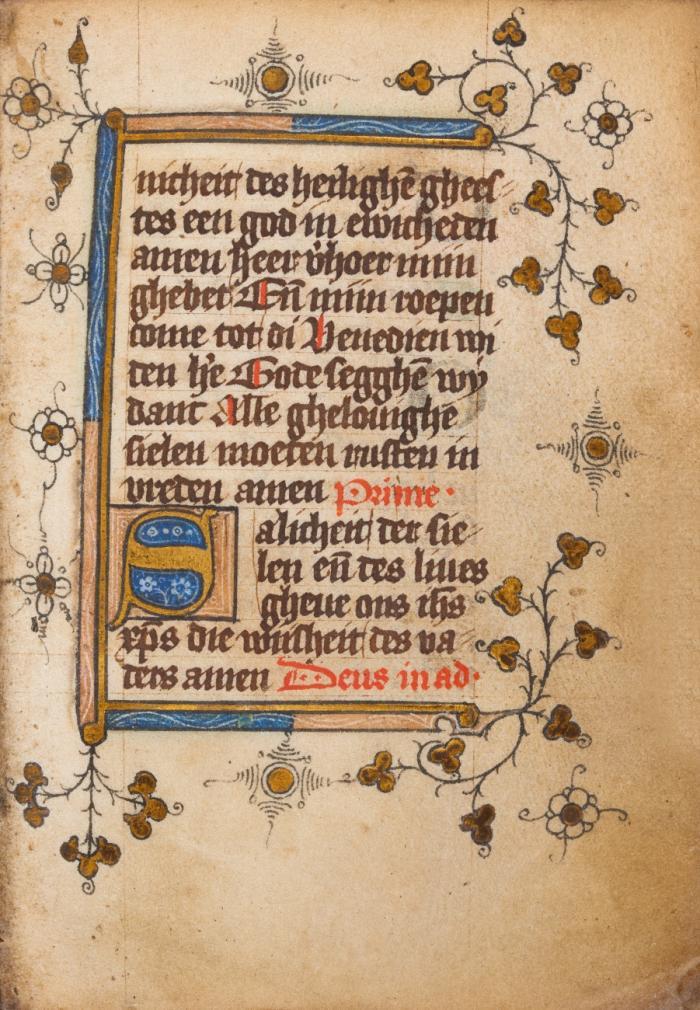 nicheit des heilighē ghees
tes een god in ewicheden
amen heer v̄hoer miin
ghebet Eñ miin roepen
come tot di Benedien wi
den he᷑ Gode segghē wy
danc Alle ghelouighe
sielen moeten rusten in
vreden amen Prime
Salicheit der sie
len eñ des liues
gheue ons ihs
xp̄s die wiisheit des va
ders amen Deus in ad